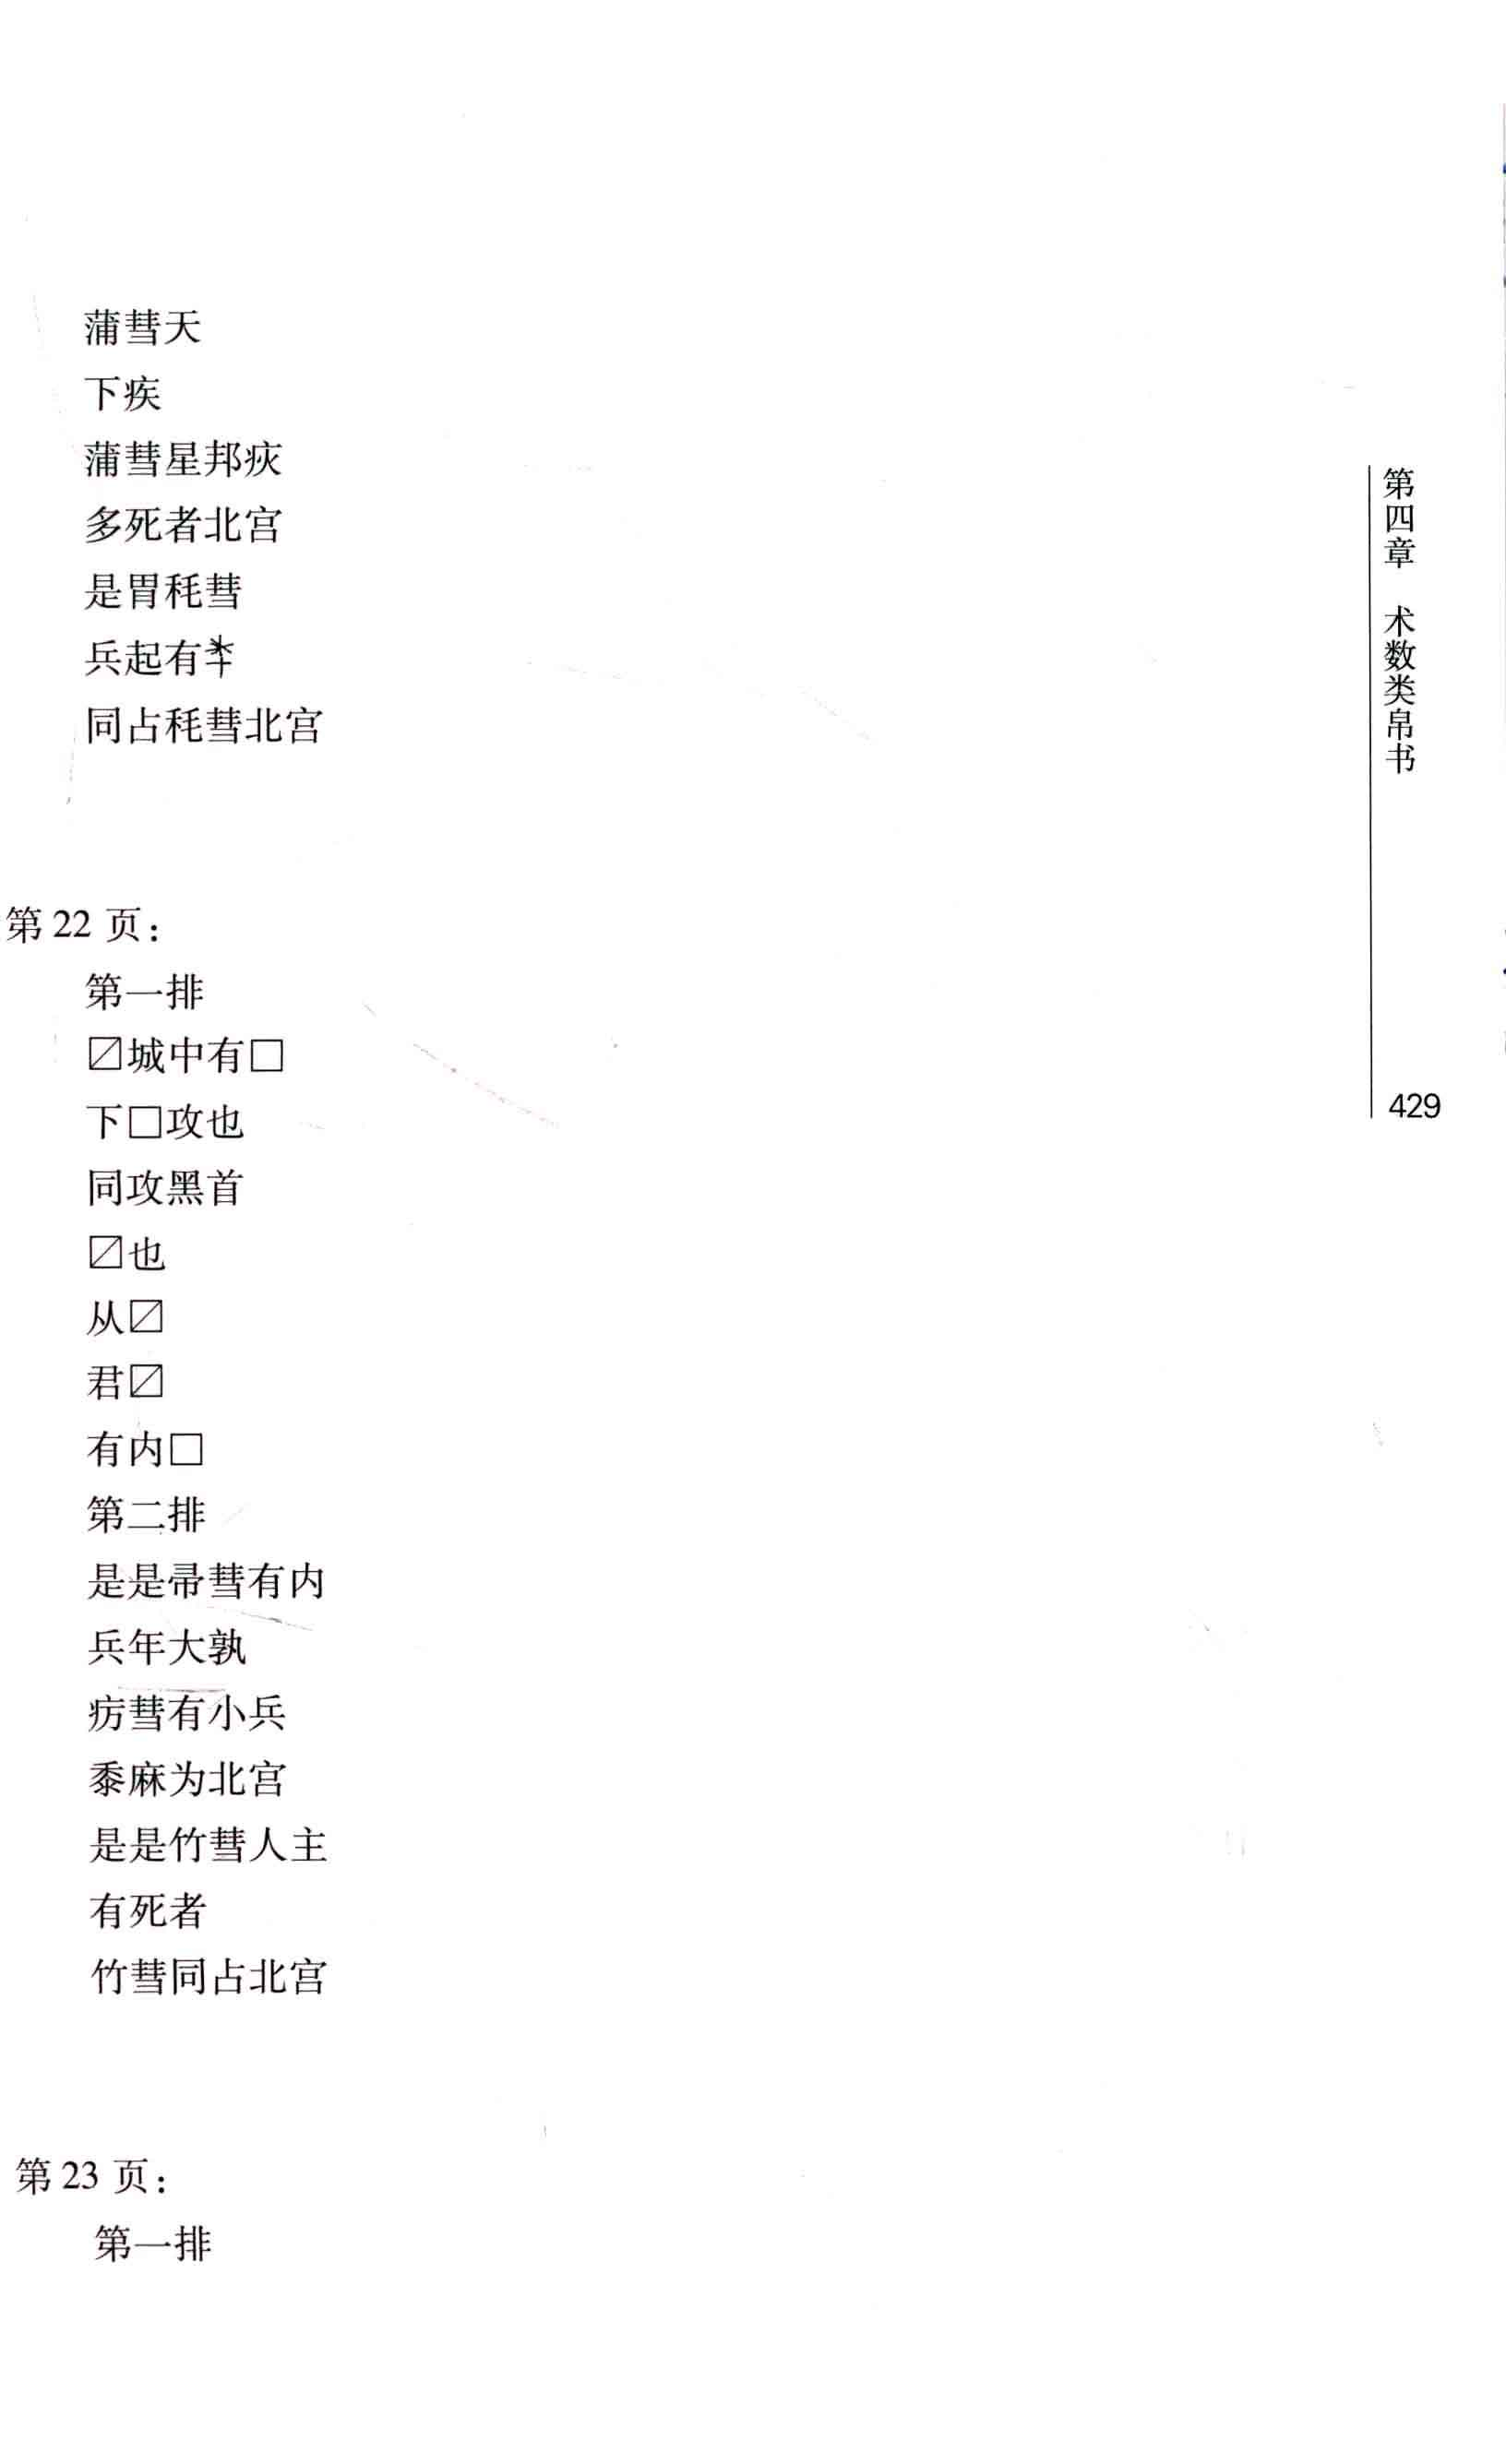 蒲彗天
下疾
蒲彗星邦疢
多死者北宫
是胃秏彗
兵起有
同占秏彗北宫
第22页：
第一排
〼城中有□
下□攻也
同攻黑首
〼也
从〼
君〼
有内□
第二排
是是帚彗有内
兵年大孰
疠彗有小兵
黍麻为北宫
是是竹彗人主
有死者
竹彗同占北宫
第23页：
第一排
第四章 术数类帛书
429